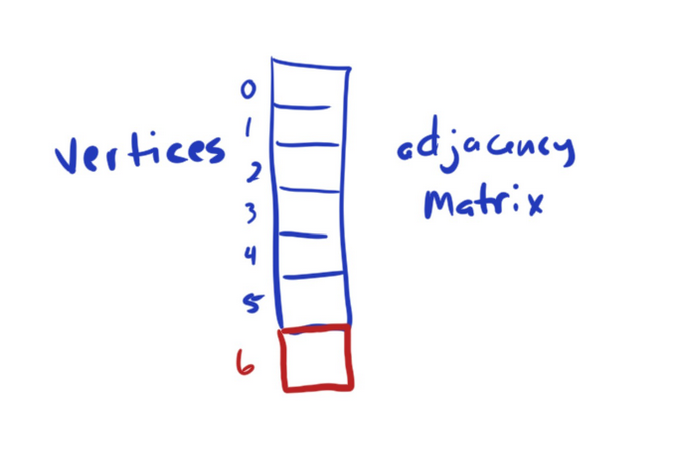 vertices
0
1
2
3
4
5
6
adjacency
Matrix